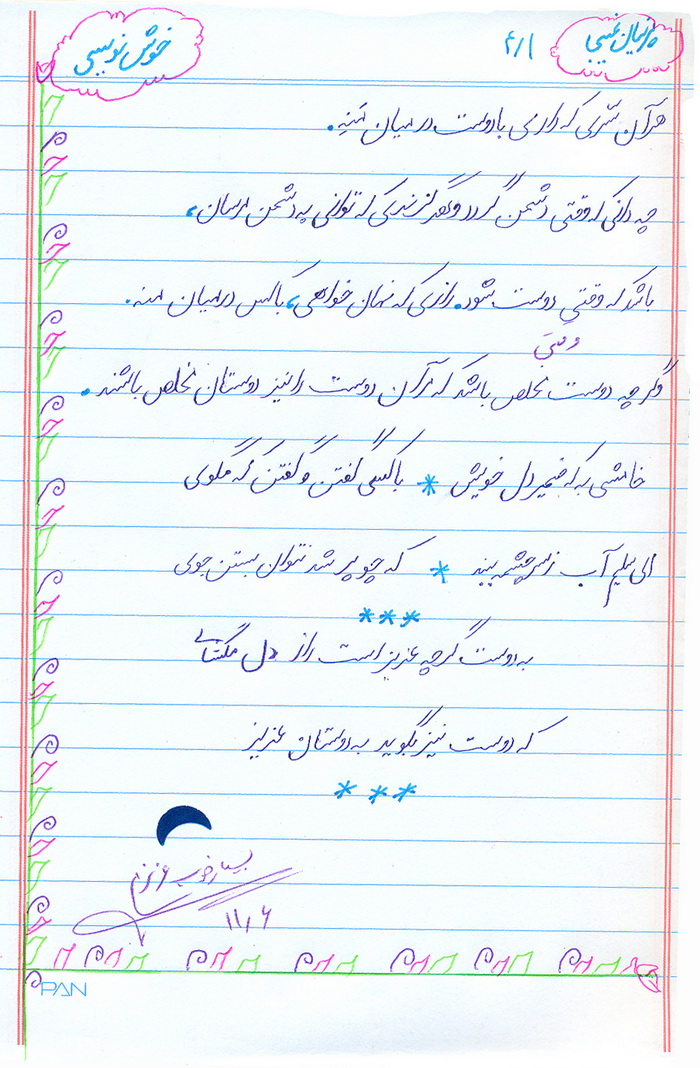 پرنیان ۴/۱ خوش نویسی
هر آن سّری که داری با دوست در میان مَنِه.
چه دانی که وقتی دشمن گردد و هر گزندی که توانی به دشمن مرسان،
باشد که وقتی دوست شود. رازی که نهان خواهی، با کس در میان منه.
وگرچه دوست مخلص باشد که مر آن دوست را نیز دوستان مخلص باشند.
خامشی به که ضمیر دل خویش * با کسی گفتن و گفتن که مگوی
ای سلیم آب ز سرچشمه ببند * که چو پر شد نتوان بستن جوی
***
به دوست گرچه عزیز است راز دل مگشای
که دوست نیز بگوید به دوستان عزیز
***
بسیار خوب عزیزم
۱۱/۶
PAN